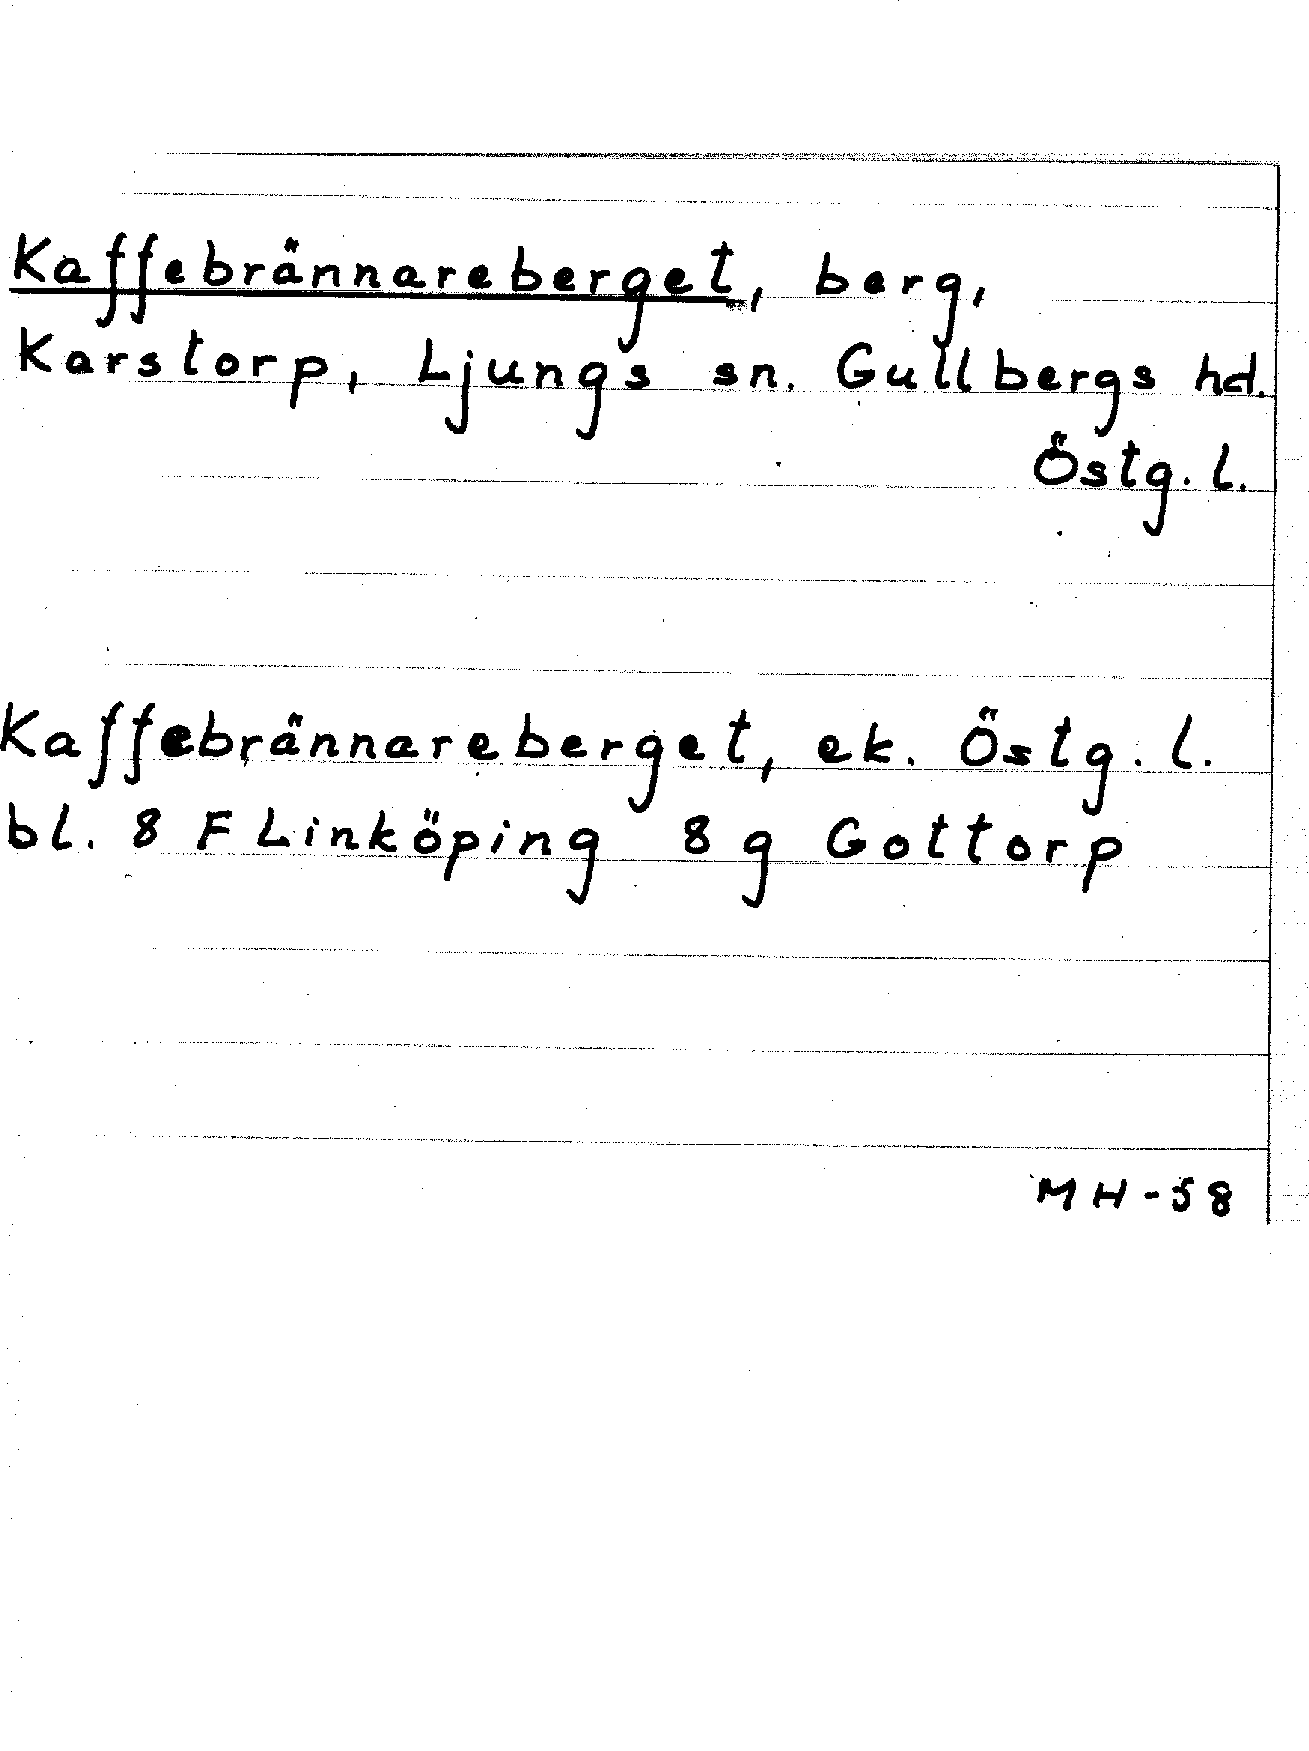 Kaffebrännareberget, berg,
Karstorp, Ljungs sn. Gullbergs hd.
Östg. l.
Kaffebrännareberget, ek. Östg. l.
bl. 8 F Linköping 8 g Gottorp
MH-58